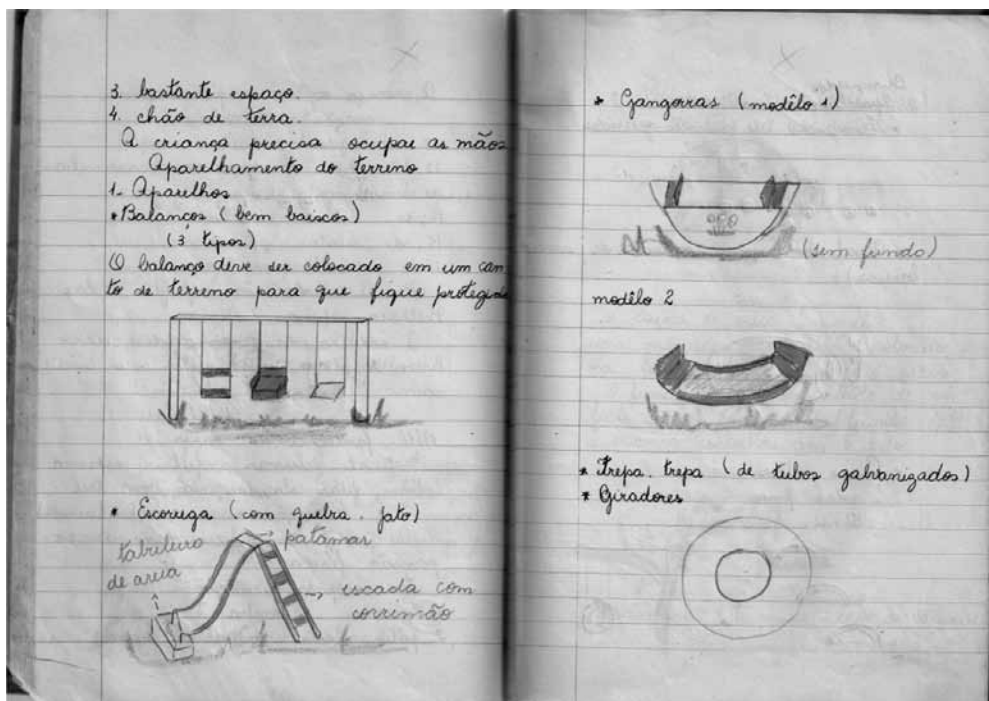 3. bastante espaço.
4. chão de terra.
A criança precisa ocupar as mãos
Aparelhamento do terreno
1. Aparelhos
* Balanços (bem baixos)
(3 tipos)
O balanço deve ser colocado em um can
to de terreno para que fique protegido
* Escorrega (com quebra-jato)
tabuleiro
de areia
→ patamar
→ escada com
corrimão
* Gangorras (modêlo 1)
(sem fundo)
modêlo 2
* Trepa-trepa (de tubos galvanizados)
* Giradores